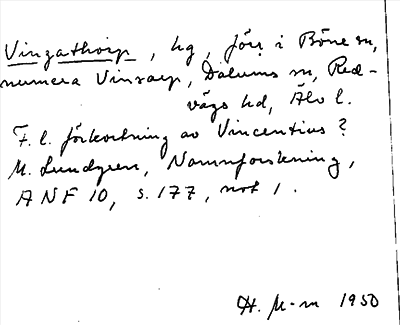 Vinzathorp, hg, förr i Böne sn,
numera Vinsarp, Dalums sn, Red-
vägs hd, Älvs l.
F. l. förkortning av Vincentius?
M. Lundgren, Namnforskning,
ANF 10, s. 177, not 1.
H. M-m 1950